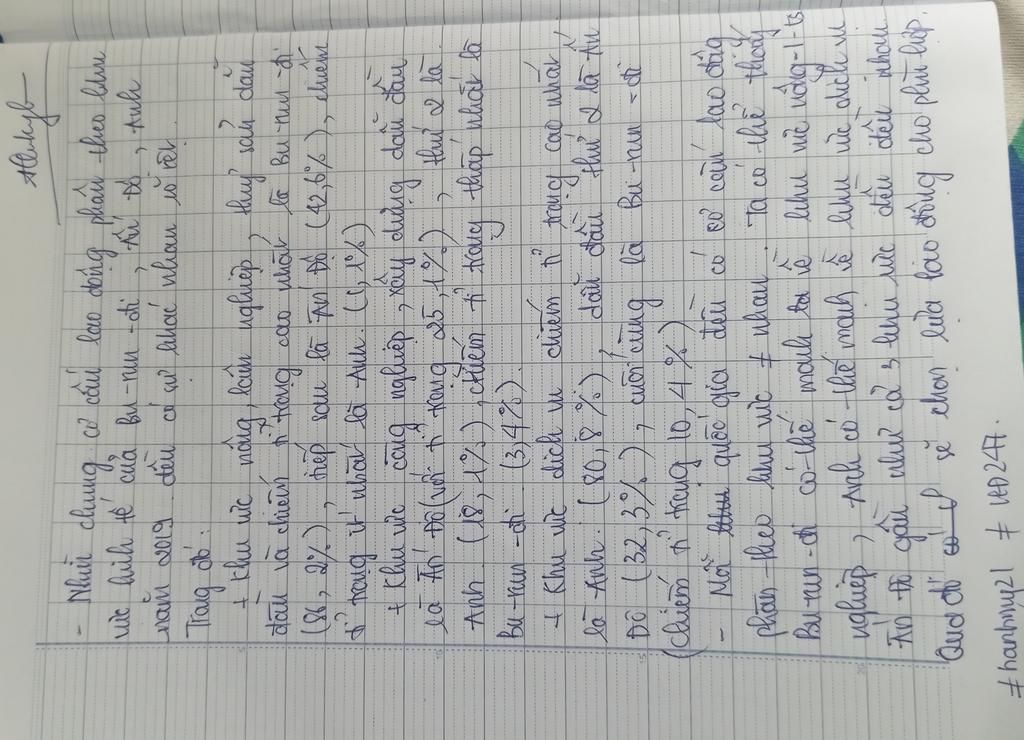 - Nhìn chung cơ cấu lao động phân theo khu
vức kinh tế của Bu-run-đi, Ấn Độ, Anh
năm 2019 đều có sự khác nhau rõ rệt.
Trong đó:
+ Khu vức nông, lâm nghiệp, thuỷ sản dẫn
đầu và chiếm tỉ trọng cao nhất là Bu-run-đi
(86,2%), tiếp sau là Ấn Độ (42,6%), chiếm
tỉ trọng ít nhất là Anh. (1,1%)
+ Khu vức công nghiệp, xây dựng dẫn đầu
là Ấn Độ (với tỉ trọng 25,1%), thứ 2 là
Anh (18,1%), chiếm tỉ trọng thấp nhất là
Bu-run-đi (3,4%).
+ Khu vức dịch vụ chiếm tỉ trọng cao nhất
là Anh: (80,8%), dẫn đầu thứ 2 là Ấn
Độ (32,3%), cuối cùng là Bu-run-đi
(chiếm tỉ trọng 10,4%)
- Mỗi quốc gia đều có cơ cấu lao động
phân theo khu vức ≠ nhau. Ta có thể thấy
Bu-run-đi có thế mạnh về khu vức nông-l-ts
nghiệp, Anh có thế mạnh về khu vức dịch vụ
Ấn Độ gần như cả 3 khu vức đều đều nhau.
Qua đó sẽ chọn lựa lao động cho phù hợp.
≠hanhmyz1 ≠ VĐ247.